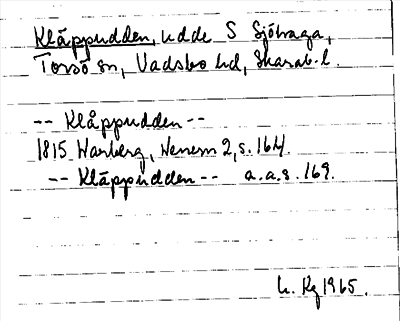 Kläppudden, udde S Sjöhaga,
Torsö sn, Vadsbo hd, Skarab. l.
-- Klåppudden --
1815 Warberg, Wenern 2, s. 164.
-- Kläppudden -- a.a.s. 169.
L. Rz 1965.